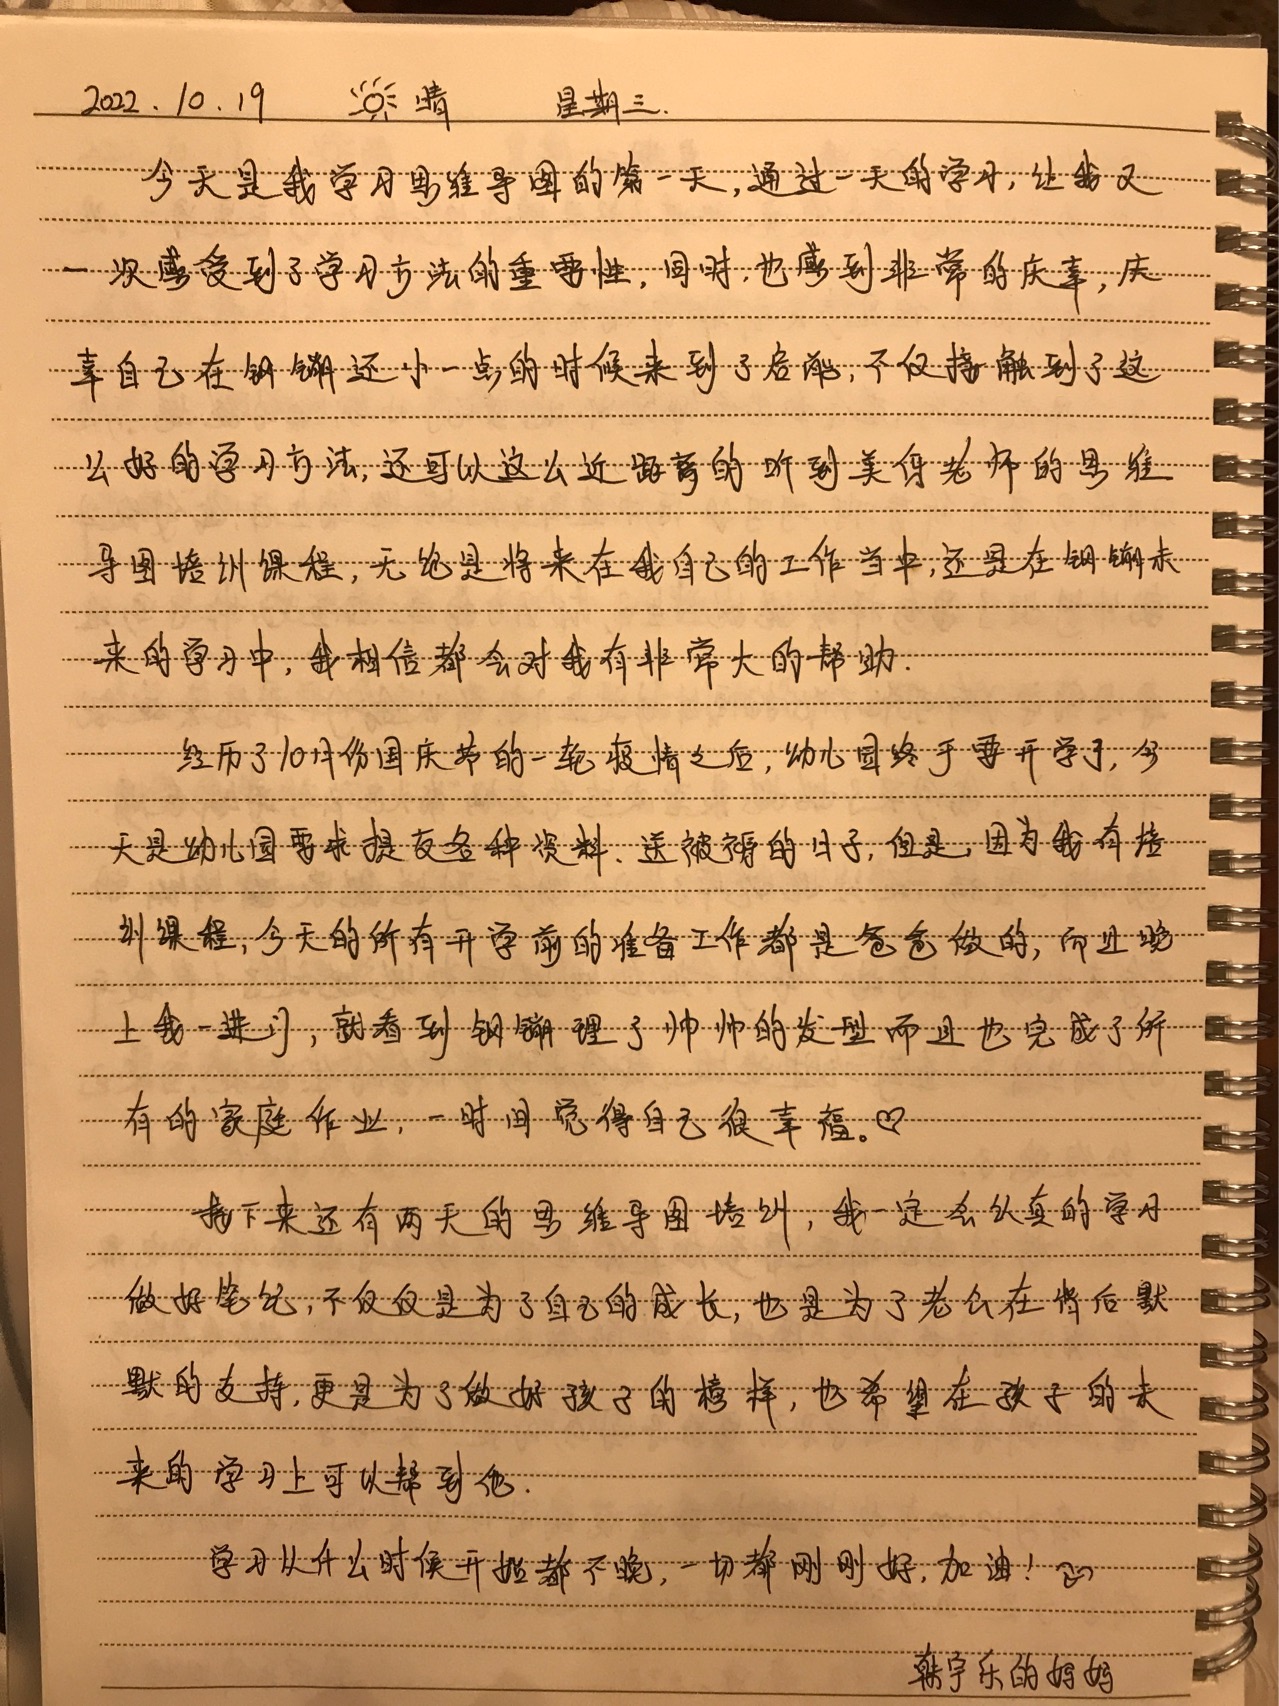 2022.10.19 晴 星期三.
今天是我学习思维导图的第一天,通过一天的学习,让我又
一次感受到了学习方法的重要性,同时,也感到非常的庆幸,庆
幸自己在钢镚还小一点的时候来到了启能,不仅接触到了这
么好的学习方法,还可以这么近距离的听到美伢老师的思维
导图培训课程,无论是将来在我自己的工作当中,还是在钢镚未
来的学习中,我相信都会对我有非常大的帮助.
经历了10月份国庆节的一轮疫情之后,幼儿园终于要开学了,今
天是幼儿园要求提交各种资料、送被褥的日子,但是,因为我有培
训课程,今天的所有开学前的准备工作都是爸爸做的,而且晚
上我一进门,就看到钢镚理了帅帅的发型而且也完成了所
有的家庭作业,一时间觉得自己很幸福。♡
接下来还有两天的思维导图培训,我一定会认真的学习
做好笔记,不仅仅是为了自己的成长,也是为了老公在背后默
默的支持,更是为了做好孩子的榜样,也希望在孩子的未
来的学习上可以帮到他.
学习从什么时候开始都不晚,一切都刚刚好,加油!
韩宇乐的妈妈